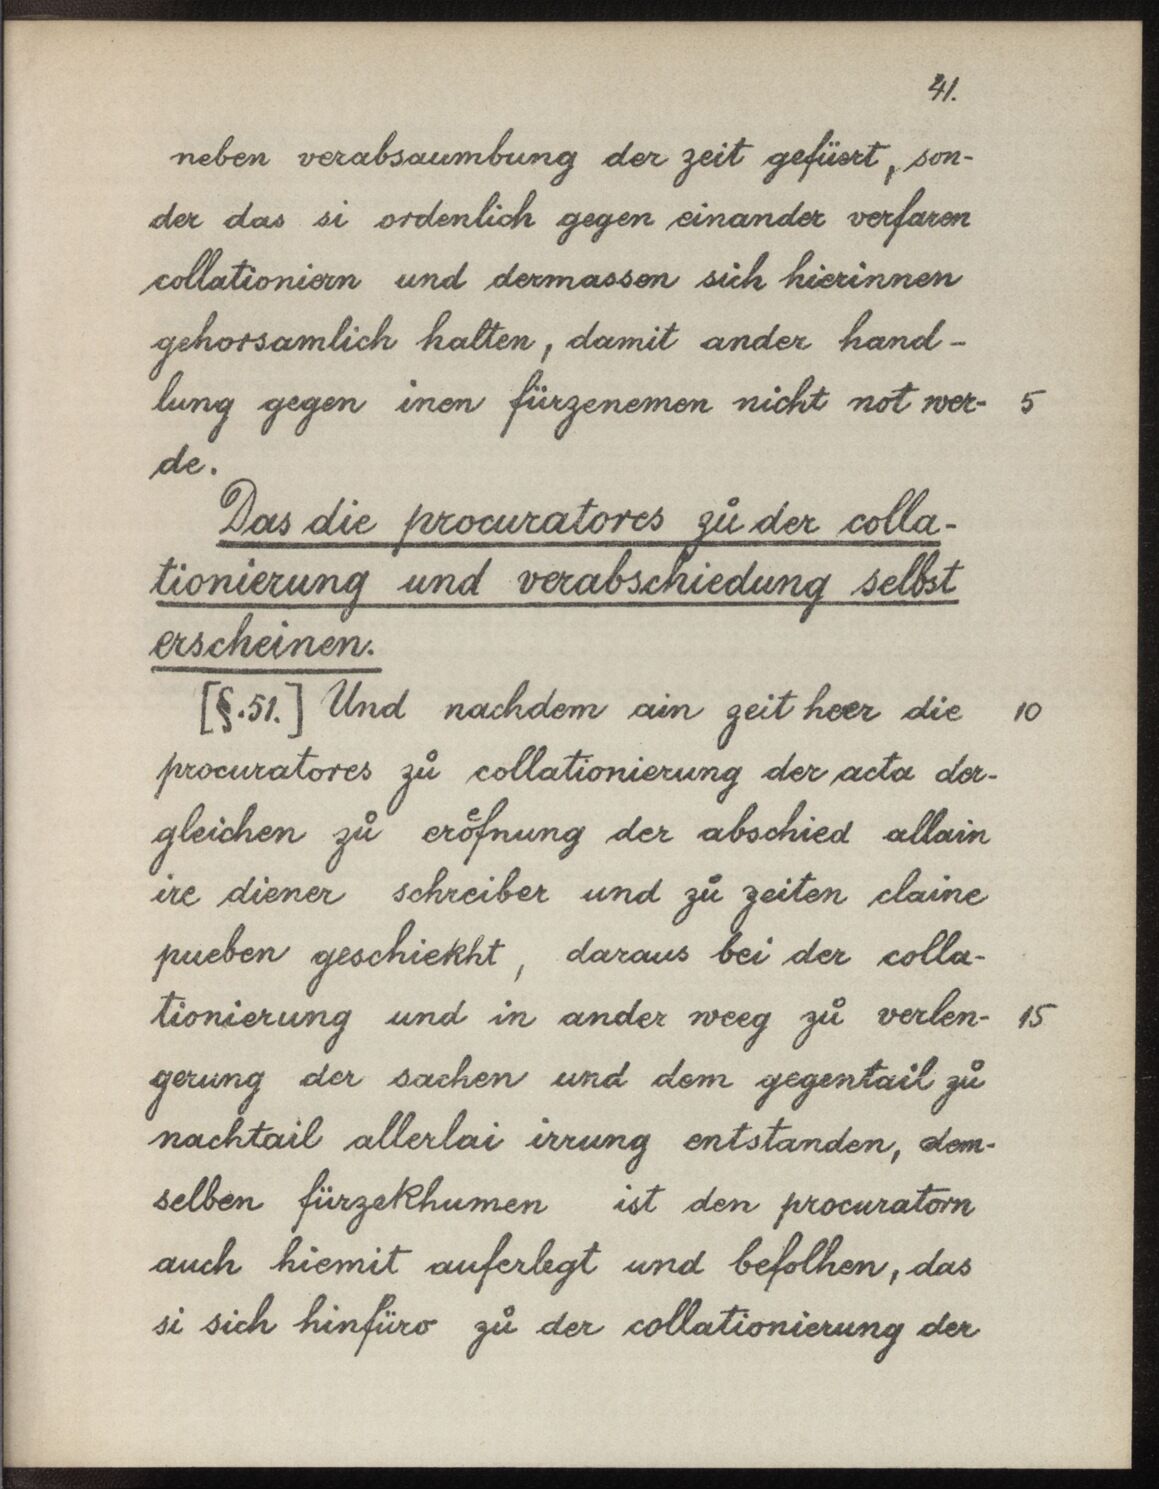 41.
neben verabsaumbung der zeit gefüert, son-
der das si ordenlich gegen einander verfaren
collationiern und dermassen sich hierinnen
gehorsamlich halten, damit ander hand-
lung gegen inen fürzenemen nicht not wer- 5
de.
Das die procuratores zů der colla-
tionierung und verabschiedung selbst
erscheinen.
[§.51.] Und nachdem ain zeit heer die 10
procuratores zů collationierung der acta der-
gleichen zů eroͤfnung der abschied allain
ire diener schreiber und zů zeiten claine
pueben geschiekht, daraus bei der colla-
tionierung und in ander weeg zů verlen- 15
gerung der sachen und dem gegentail zů
nachtail allerlai irrung entstanden, dem-
selben fürzekhumen ist den procuratorn
auch hiemit auferlegt und befolhen, das
si sich hinfüro zů der collationierung der